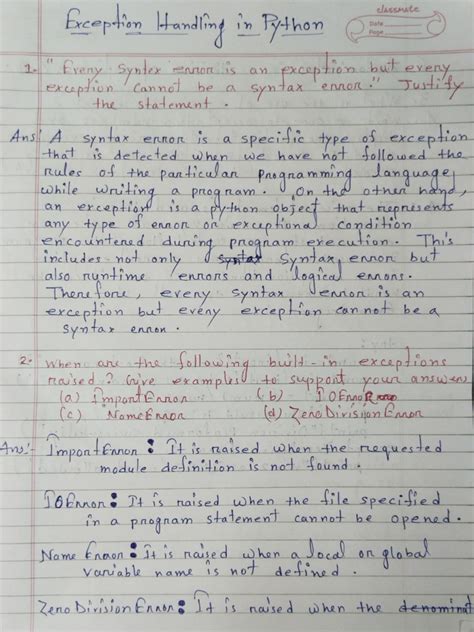 Exception Handling in Python
classmate
Date
Page
1. "Every syntex error is an exception but every
exception cannot be a syntax error." Justify
the statement.
Ans A syntax error is a specific type of exception
that is detected when we have not followed the
rules of the particular programming language,
while writing a program. On the other hand,
an exception is a python object that represents
any type of error or exceptional condition
encountered during program execution. This
includes not only syntax error but
also runtime errors and logical errors.
Therefore, every syntax error is an
exception but every exception cannot be a
syntax error.
2. When are the following built-in exceptions
raised? Give examples to support your answers
(a) ImportError (b) IOError
(c) NameError (d) ZeroDivisionError
Ans:- ImportError: It is raised when the requested
module definition is not found.
IOError: It is raised when the file specified
in a program statement cannot be opened.
Name Error: It is raised when a local or global
variable name is not defined.
ZeroDivisionError: It is raised when the denominat